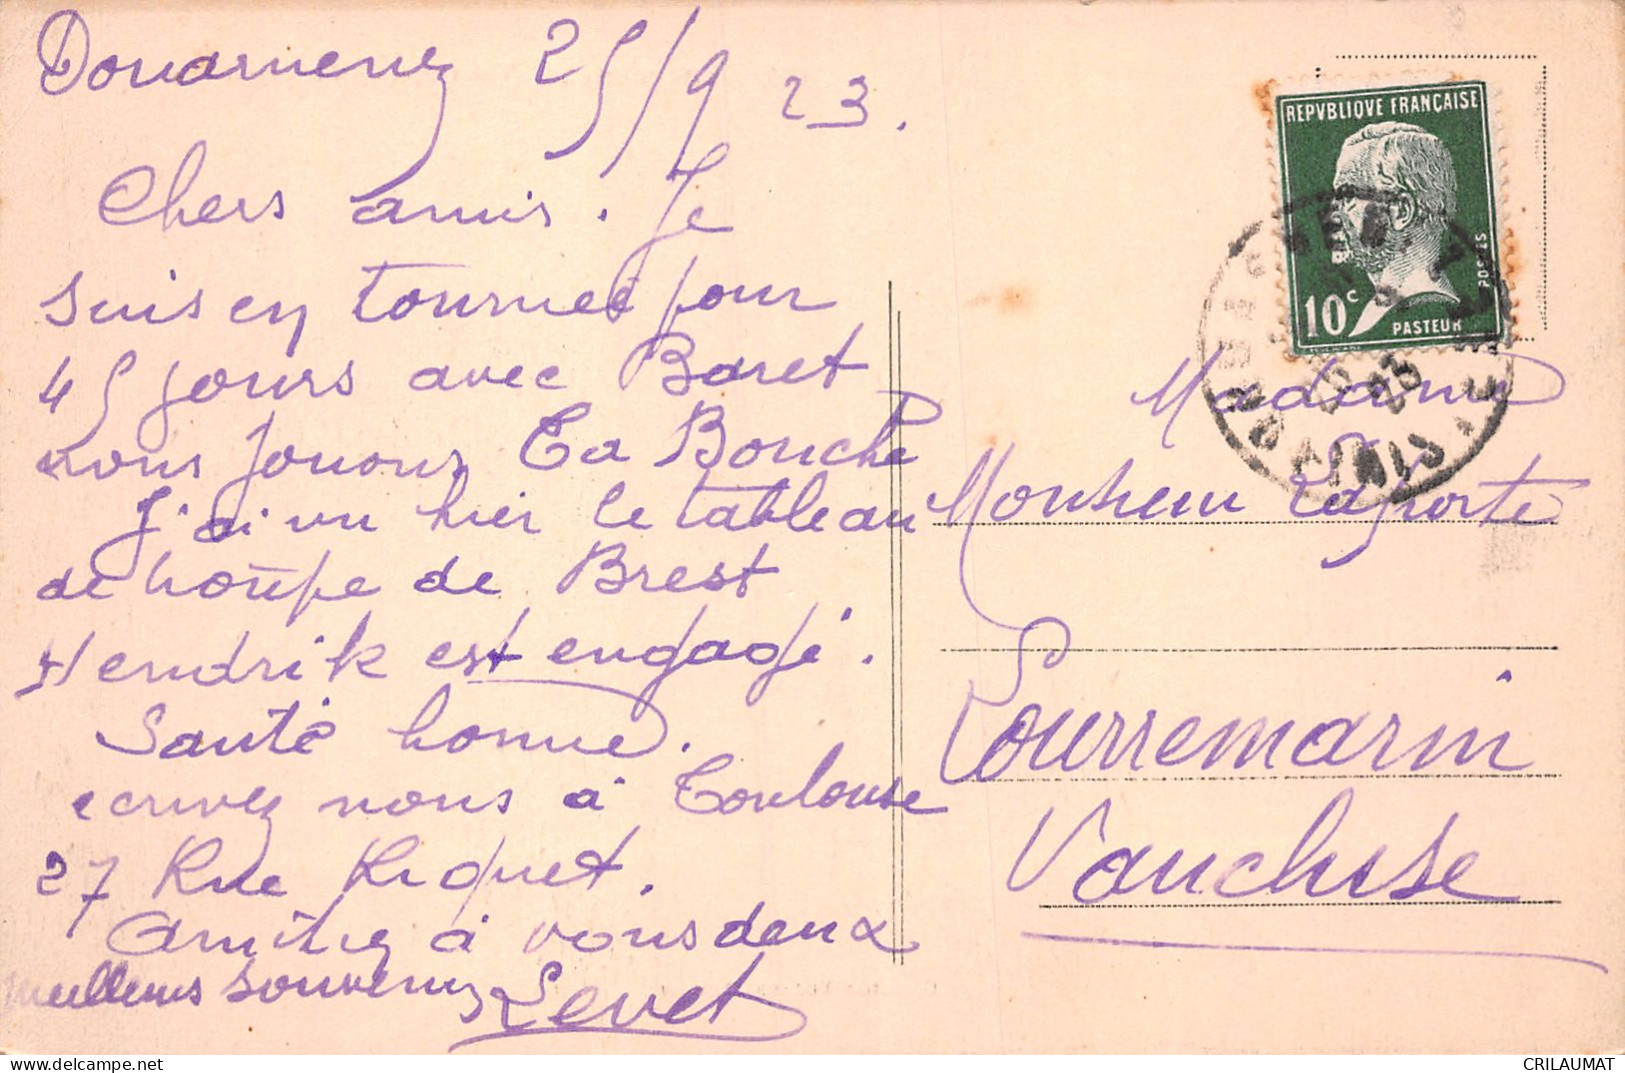 Douarnenez 25/9 23.
Chers amis. Je
suis en tournée pour
45 jours avec Baret
nous jouons La Bouche
J'ai vu hier le tableau
de houppe de Brest
Hendrik est engagé.
Santé bonne.
ecrivez nous à Toulouse
27 Rue Riquet.
Amitiés à vous deux
meilleurs souvenirs Levet
REPVBLIQVE FRANÇAISE
POSTES
10c
PASTEUR
Madame
Monsieur Laporte
Lourremarin
Vaucluse
FINISTERE
CRILAUMAT